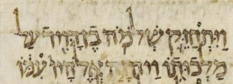 ויתחזק שלמה בן דויד על
מלכותו ויהוה אלהיו עמו